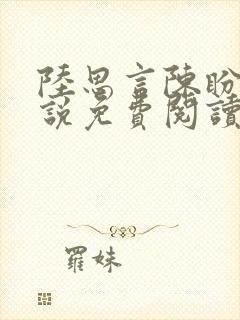 陸思言陳盼
說免費閱讀
羅妹